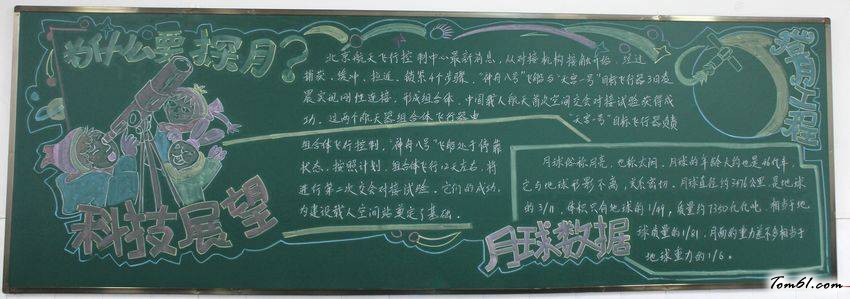 为什么要探月?
北京航天飞行控制中心最新消息,从对接机构接触开始,经过
捕获、缓冲、拉近、锁紧4个步骤,“神舟八号”飞船与“天宫一号”目标飞行器3日凌
晨实现刚性连接,形成组合体,中国载人航天首次空间交会对接试验获得成
功。这两个航天器组合体飞行器由
“天宫一号”目标飞行器负责
组合体飞行控制,“神舟八号”飞船处于停靠
状态,按照计划,组合体飞行12天左右,将
进行第二次交会对接试验。它们的成功,
为建设载人空间站奠定了基础。
科技展望
探月工程
月球俗称月亮,也称太阴。月球的年龄大约也是46亿年,
它与地球形影不离,关系密切。月球直径约3476公里,是地球
的3/11。体积只有地球的1/49,质量约7350亿亿吨,相当于地
球质量的1/81,月面的重力差不多相当于
地球重力的1/6。
月球数据
Tom61.com